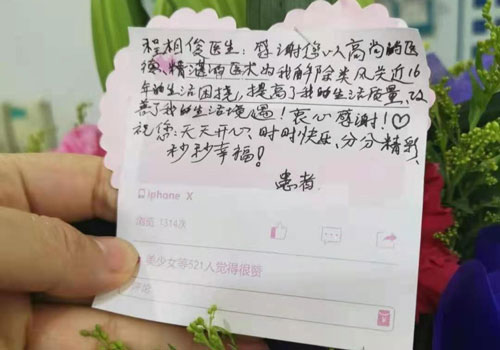 程相俊医生:感谢您以高尚的医
德、精湛的医术为我解除类风关近16
年的生活困挠,提高了我的生活质量,改
善了我的生活境遇!衷心感谢!♡
祝您:天天开心、时时快乐、分分精彩、
秒秒幸福!
患者
iphone X
浏览 1314次
美少女等521人觉得很赞
评论